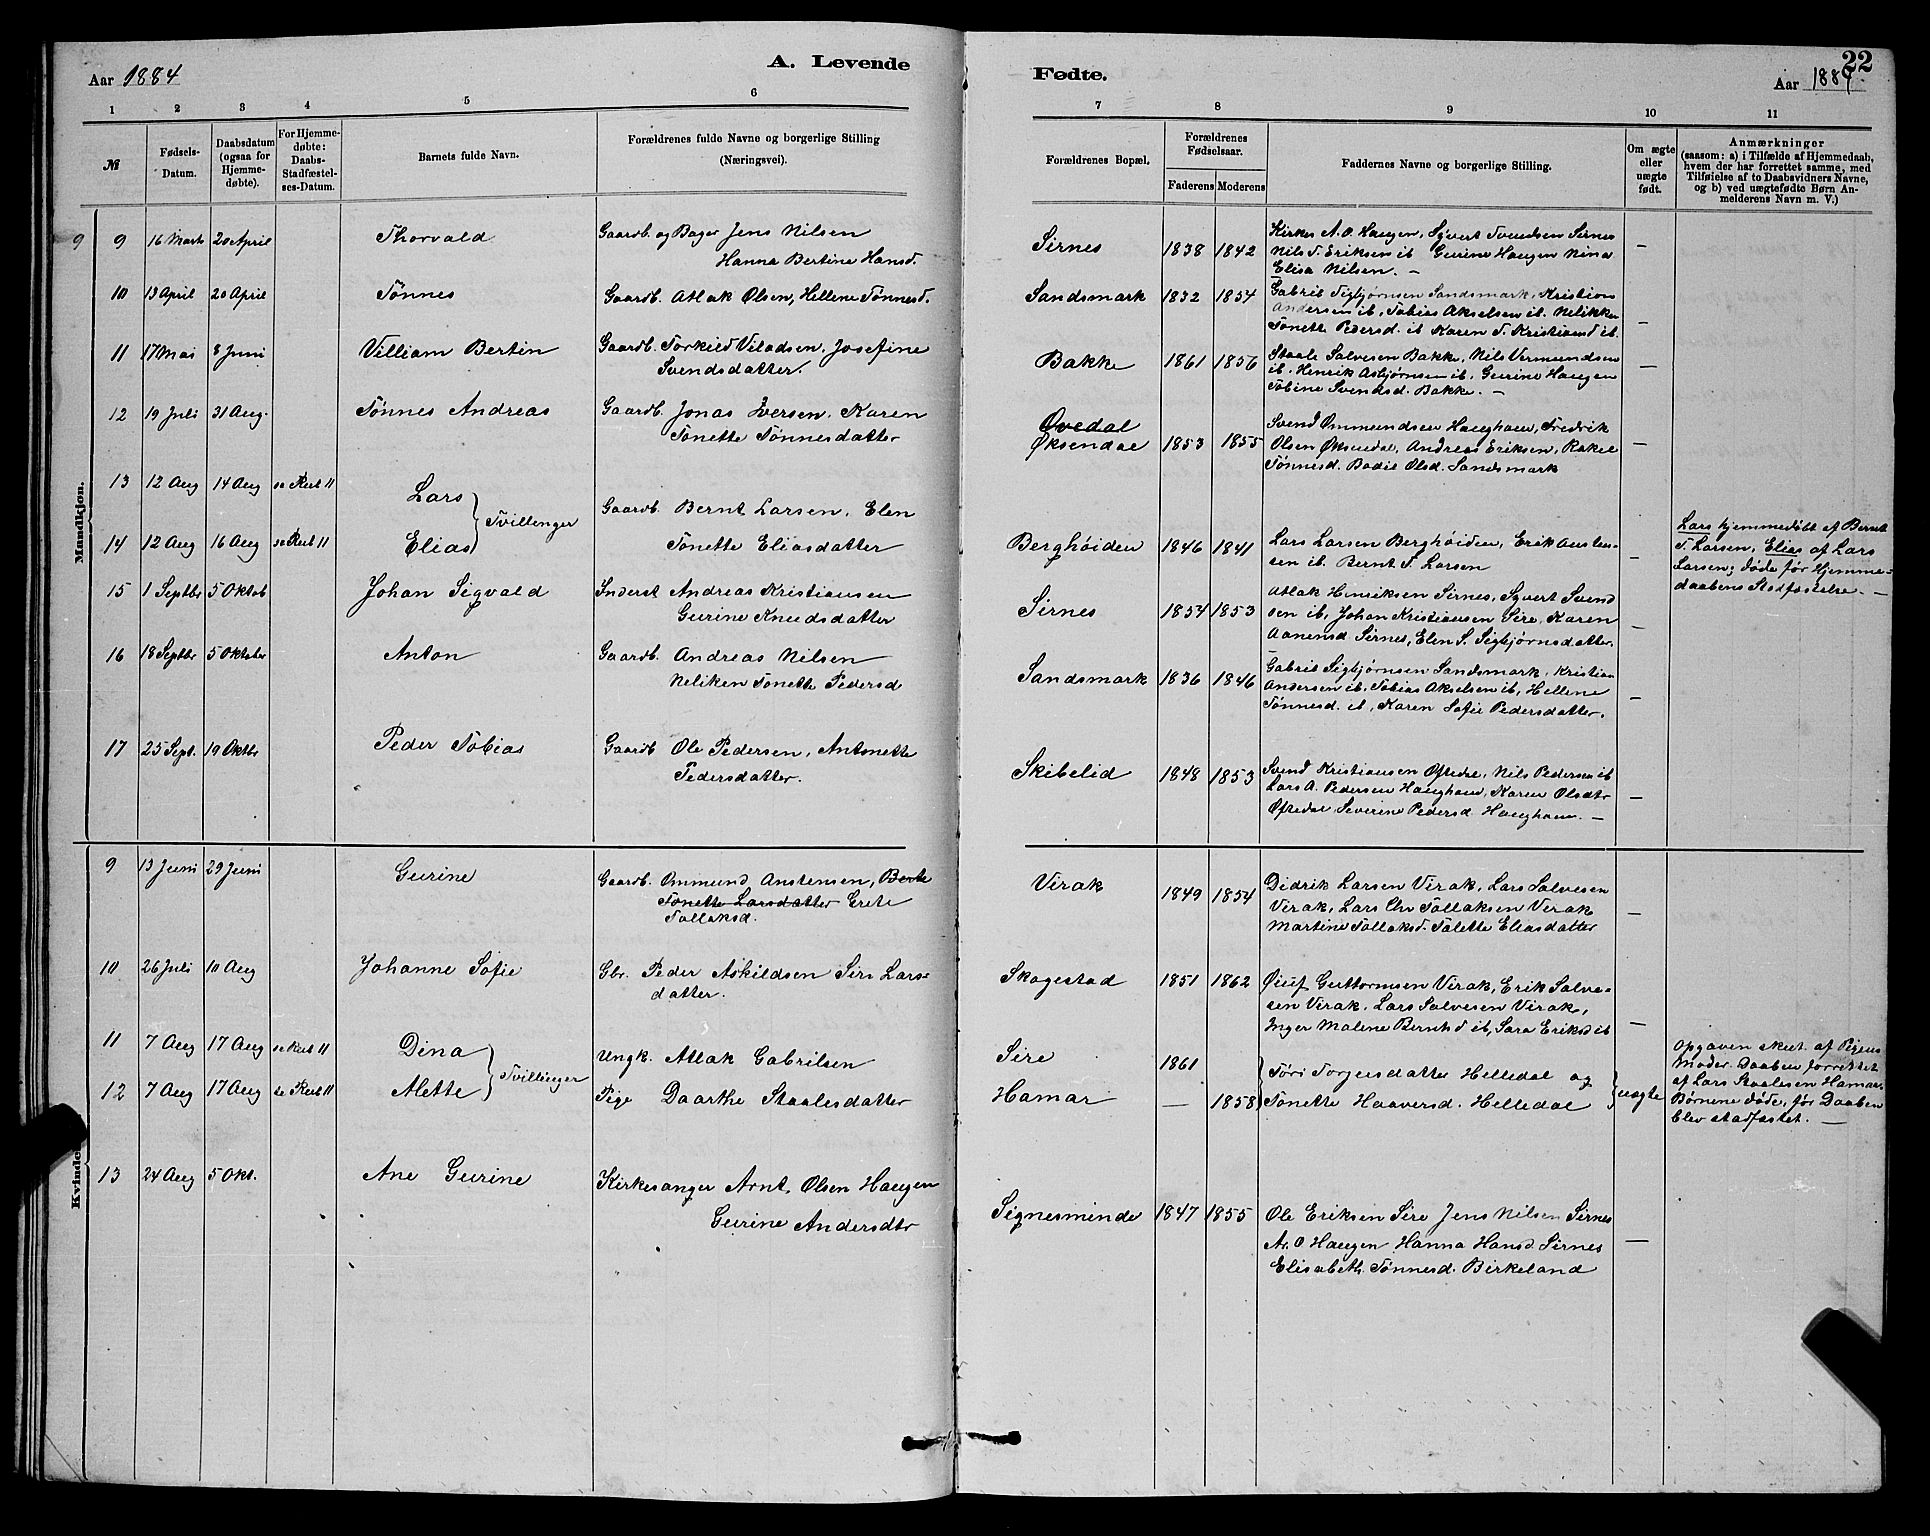 Aar 1884
A. Levende
Fødte.
22
Aar 1884
1 2 3 4 5 6 7 8 9 10 11
№
Fødsels-
Datum.
Daabsdatum
(ogsaa for
Hjemme-
døbte).
For Hjemme-
døbte:
Daabs-
Stadfæstel-
ses-Datum.
Barnets fulde Navn.
Forældrenes fulde Navne og borgerlige Stilling
(Næringsvei).
Forældrenes Bopæl.
Forældrenes
Fødselsaar.
Faderens Moderens
Faddernes Navne og borgerlige Stilling.
Om ægte
eller
uægte
født.
Anmærkninger
(saasom: a) i Tilfælde af Hjemmedaab,
hvem der har forrettet samme, med
Tilføielse af to Daabsvidners Navne,
og b) ved uægtefødte Børn An-
melderens Navn m. V.)
Mandkjøn.
9 9 16 Marts 20 April Thorvald
Gaardb. og Bager Jens Nilsen
Hanna Bertine Hansd.
Sirnes 1838 1842
Kirkes A. O. Haugen, Syvert Svendsen Sirnes
Nils T. Eriksen ib Gurine Haugen Nina
Elisa Nilsen. —
—
10 13 April 20 April Tønnes
Gaardb. Atlak Olsen, Hellene Tønnesd.
Sandsmark 1832 1854
Gabriel Sigbjørnsen Sandsmark, Kristian
Andersen ib, Tobias Akselsen ib. Neliken
Tonette Pedersd. ib Karen T. Kristiansd ib.
—
11 17 Mai 8 Juni Villiam Bertin
Gaardb. Torkild Viladsen, Josefine
Svendsdatter.
Bakke 1861 1856
Staale Salvesen Bakke, Nils Vermundsen
ib. Henrik Asbjørnsen ib, Gurine Haugen
Tobine Svendsd. Bakke. —
—
12 19 Juli 31 Aug. Tønnes Andreas
Gaardb. Jonas Iversen, Karen
Tonette Tønnesdatter
Ovedal
Øksendal 1853 1855
Svend Ommundsen Haugham, Fredrik
Olsen Øksendal, Andreas Eriksen, Rakel
Tønnesd. Bodil Olsd. Sandsmark
—
13 12 Aug 14 Aug se Rub 11 Lars
14 12 Aug 16 Aug se Rub 11 Elias
Tvillinger
Gaardb. Bernt Larsen, Elen
Tonette Eliasdatter
Berghøiden 1846 1841
Lars Larsen Berghøiden, Erik Austen-
sen ib. Bernt T. Larsen
—
Lars hjemmedøbt af Bernt
T. Larsen, Elias af Lars
Larsen; døde før Hjemme-
daabens Stadfæstelse. —
15 1 Septbr 5 Oktob Johan Sigvald
Inderst Andreas Kristiansen
Gurine Knudsdatter
Sirnes 1854 1853
Atlak Henriksen Sirnes, Syvert Svend
sen ib, Johan Kristiansen Sire, Karen
Aanensd Sirnes, Elen S. Sigbjørnsdatter.
—
16 18 Septbr 5 Oktober Anton
Gaardb. Andreas Nilsen
Neliken Tonette Pedersd
Sandsmark 1836 1846
Gabriel Sigbjørnsen Sandsmark, Kristian
Andersen ib, Tobias Akselsen ib, Hellene
Tønnesd. ib, Karen Sofie Pedersdatter.
—
17 25 Sept. 19 Oktbr Peder Tobias
Gaardb Ole Pedersen, Antonette
Pedersdatter.
Skibelid 1848 1853
Svend Kristiansen Oftedal, Nils Pedersen ib
Lars A. Pedersen Haugham, Karen Olsdtr
Oftedal Severine Pedersd Haugham. —
—
Kvindek
9 13 Juni 29 Juni Gurine
Gaardb. Ommund Anstensen, Berte
Tonette Larsdatter Grete
Tollaksd.
Virak 1849 1854
Didrik Larsen Virak, Lars Salvesen
Virak, Lars Chr Tollaksen Virak
Martine Tollaksd. Tolette Eliasdatter
—
10 26 Juli 10 Aug Johanne Sofie
Gbr. Peder Askildsen Siri Lars-
datter.
Skogestad 1851 1862
Guttormsen Virak, Erik Salve-
sen Virak, Lars Salvesen Virak,
Inger Malene Berntsd ib, Sara Eriksd ib
—
11 7 Aug 17 Aug se Rub 11 Dina
12 7 Aug 17 Aug se Rub 11 Alette
Tvillinger
Ungk. Atlak Gabrielsen
Pige Daarthe Staalesdatter
Sire 1861
Hamar — 1858
Tori Torgersdatter Helledal og
Tonette Haaversd. Helledal
uægte
Opgaven skeet af Pigens
Moder. Daaben forrettet
af Lars Staalesen Hamar.
Børnene døde, før Daaben
blev stadfæstet. —
13 24 Aug 5 Okt. Ane Gurine
Kirkesanger Arnt Olsen Haugen
Gurine Andersdtr
Signesminde 1847 1855
Ole Eriksen Sire Jens Nilsen Sirnes
A. O Haugen Hanna Hansd. Sirnes
Elisabeth Tønnesd. Birkeland
—